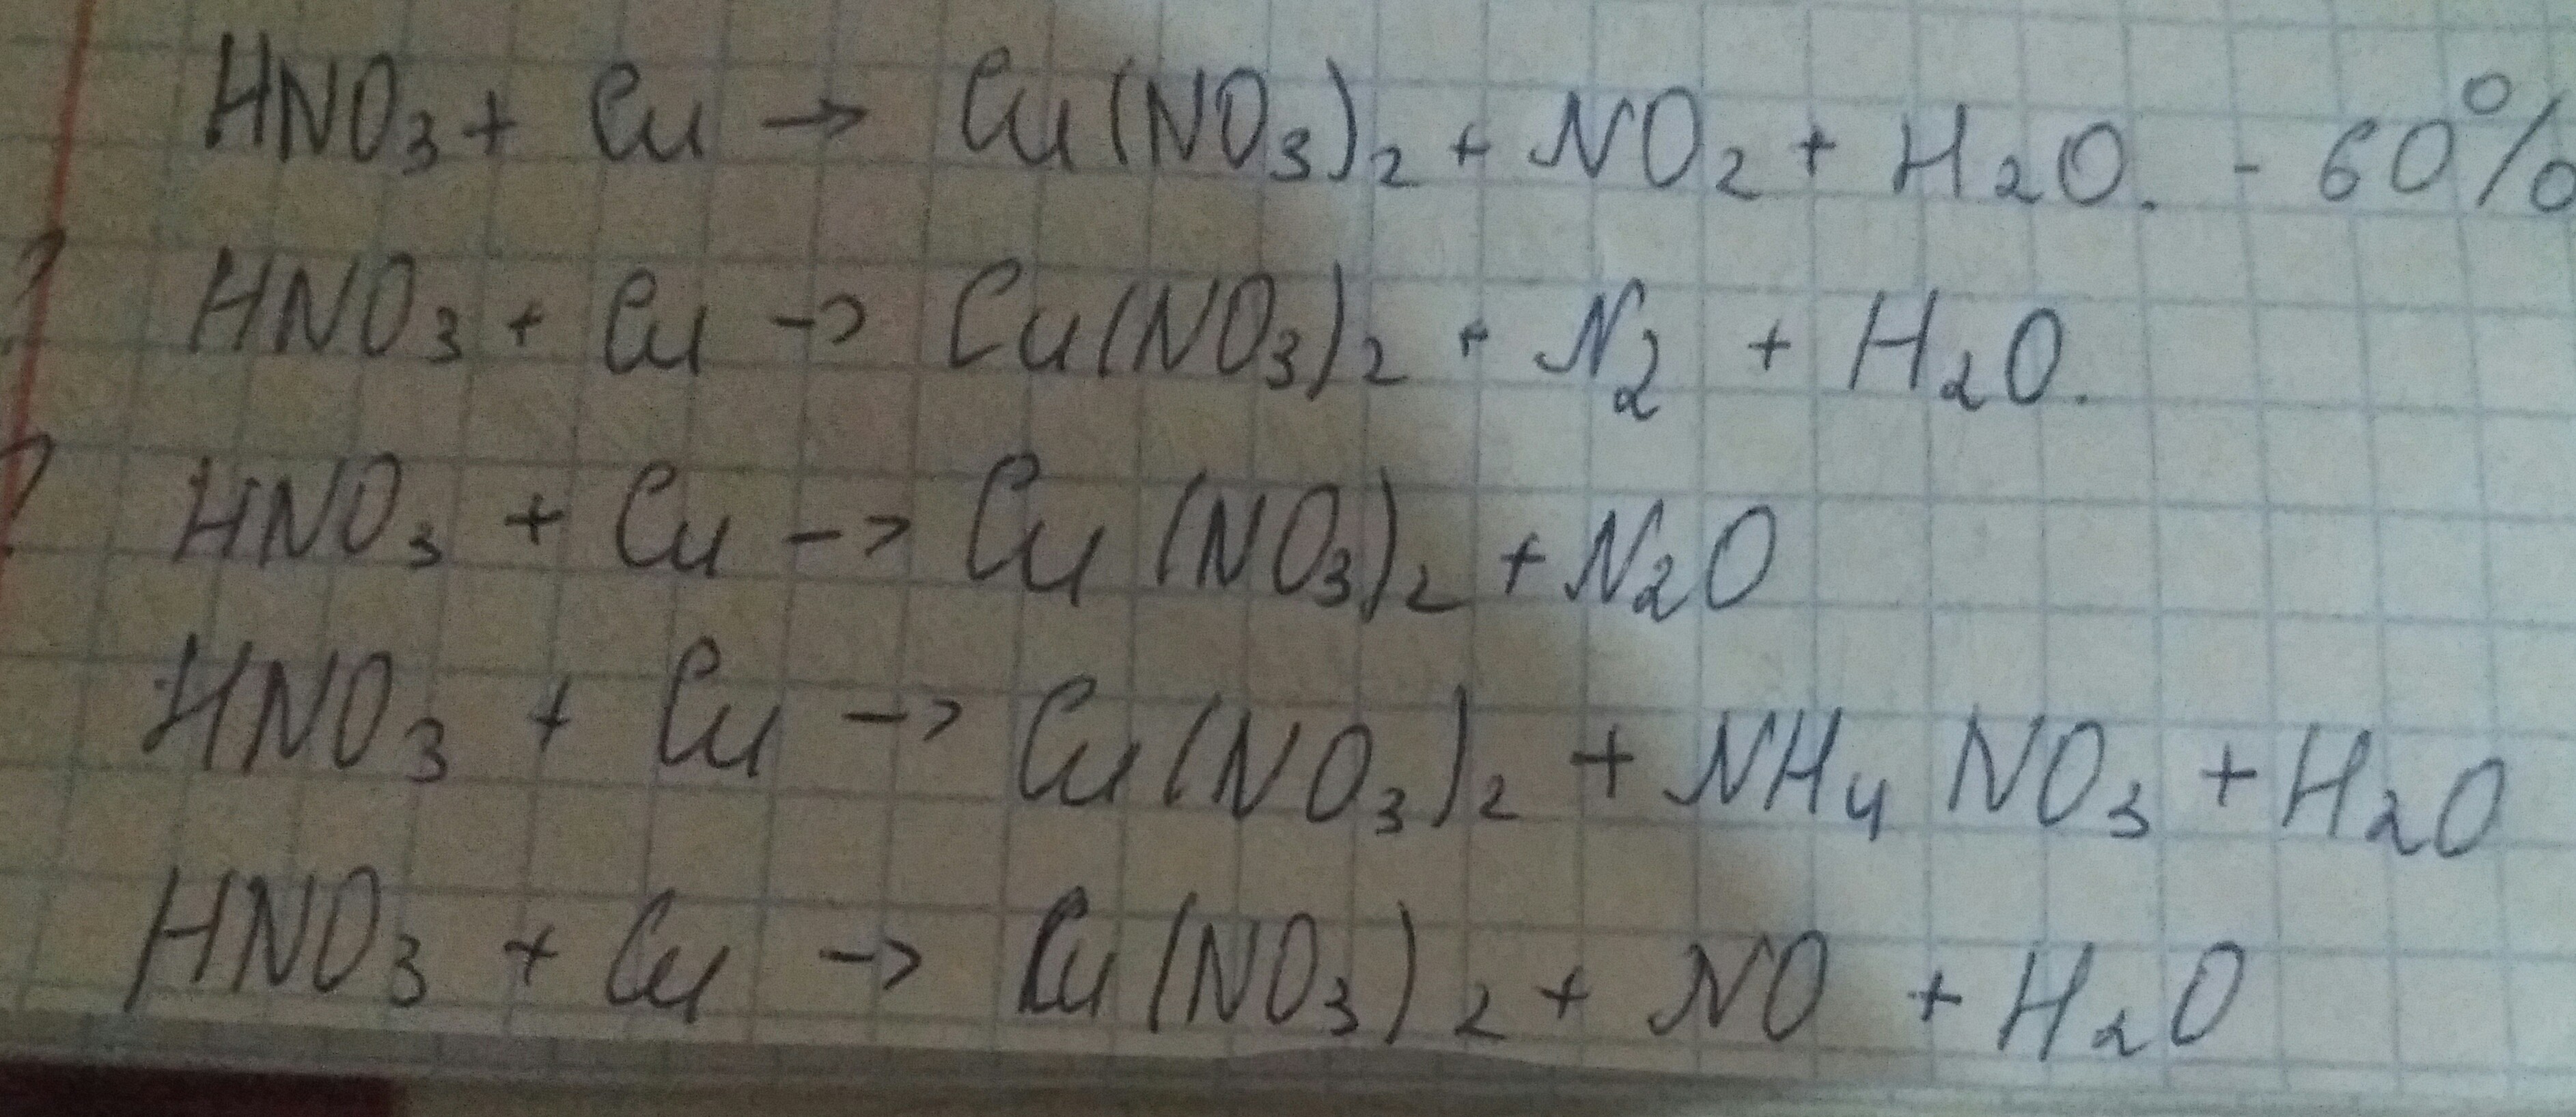 HNO₃ + Cu → Cu(NO₃)₂ + NO₂ + H₂O. - 60%
? HNO₃ + Cu → Cu(NO₃)₂ + N₂ + H₂O.
? HNO₃ + Cu → Cu(NO₃)₂ + N₂O
HNO₃ + Cu → Cu(NO₃)₂ + NH₄NO₃ + H₂O
HNO₃ + Cu → Cu(NO₃)₂ + NO + H₂O